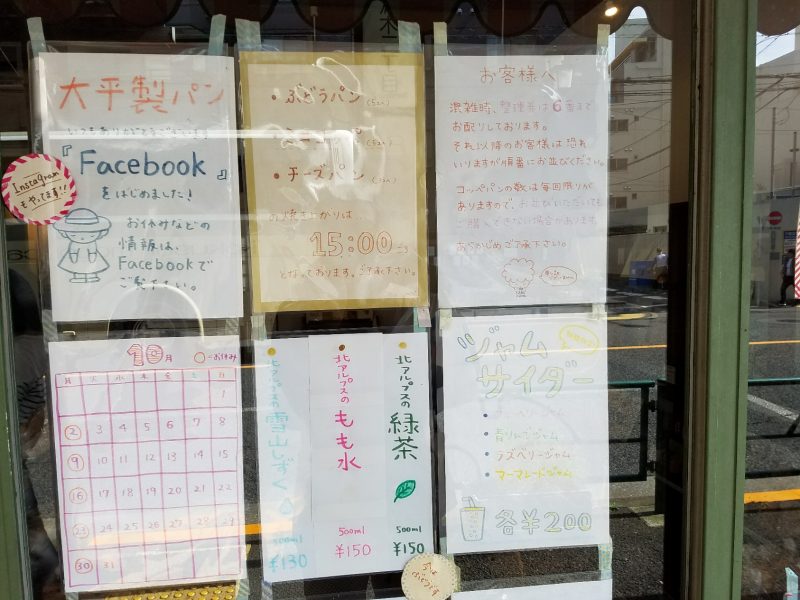 大平製パン
いつもありがとうございます!
『Facebook』
をはじめました!
お休みなどの
情報は、
Facebookで
ご覧下さい。
Instagram
もやってます!!
・ぶどうパン
・チーズパン
お焼き上がりは…
15:00ごろ
となっております。ご了承下さい。
お客様へ
混雑時、整理券は6番まで
お配りしております。
それ以降のお客様は恐れ
いりますが順番にお並びください。
コッペパンの数は毎回限りが
ありますので、お並びいただいても
ご購入できない場合があります。
あらかじめご了承下さい。
10月 ○=お休み
月 火 水 木 金 土 日
1
2 3 4 5 6 7 8
9 10 11 12 13 14 15
16 17 18 19 20 21 22
23 24 25 26 27 28 29
30 31
北アルプスの
雪山しずく
500ml
¥130
北アルプスの
もも水
500ml
¥150
北アルプスの
緑茶
500ml
¥150
ジャム
サイダー
青りんごジャム
ラズベリージャム
マーマレードジャム
各¥200